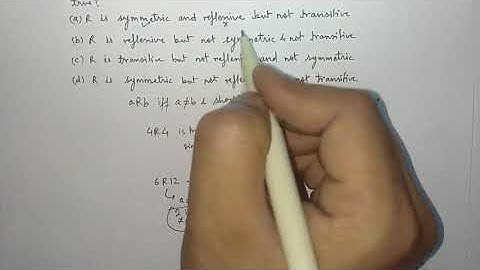 true?
(a) R is symmetric and reflexive but not transitive
(b) R is reflexive but not symmetric & not transitive
(c) R is transitive but not reflexive and not symmetric
(d) R is symmetric but not reflexive not transitive
aRb iff a≠b &
4R4 is
6R12